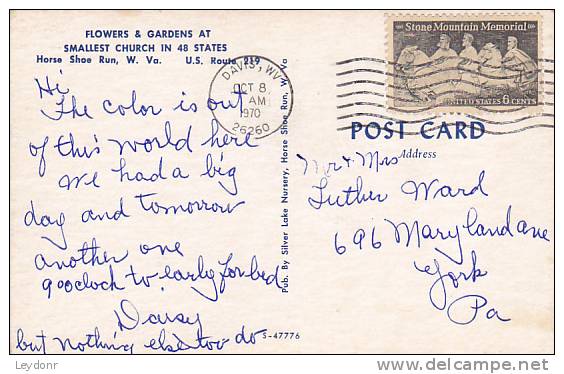 FLOWERS & GARDENS AT
SMALLEST CHURCH IN 48 STATES
Horse Shoe Run, W. Va. U.S. Route 219
Hi
The color is out
of this world here
We had a big
day and tomorrow
another one
9 oclock to early for bed
Daisy
but nothing else too do
S-47776
Pub. By Silver Lake Nursery, Horse Shoe Run, W. Va
DAVIS, WV
OCT 8
AM
1970
26260
Stone Mountain Memorial
UNITED STATES 6 CENTS
POST CARD
Address
Mr & Mrs
Luther Ward
696 Maryland ave
York
Pa
Leydonr
delcampe.net